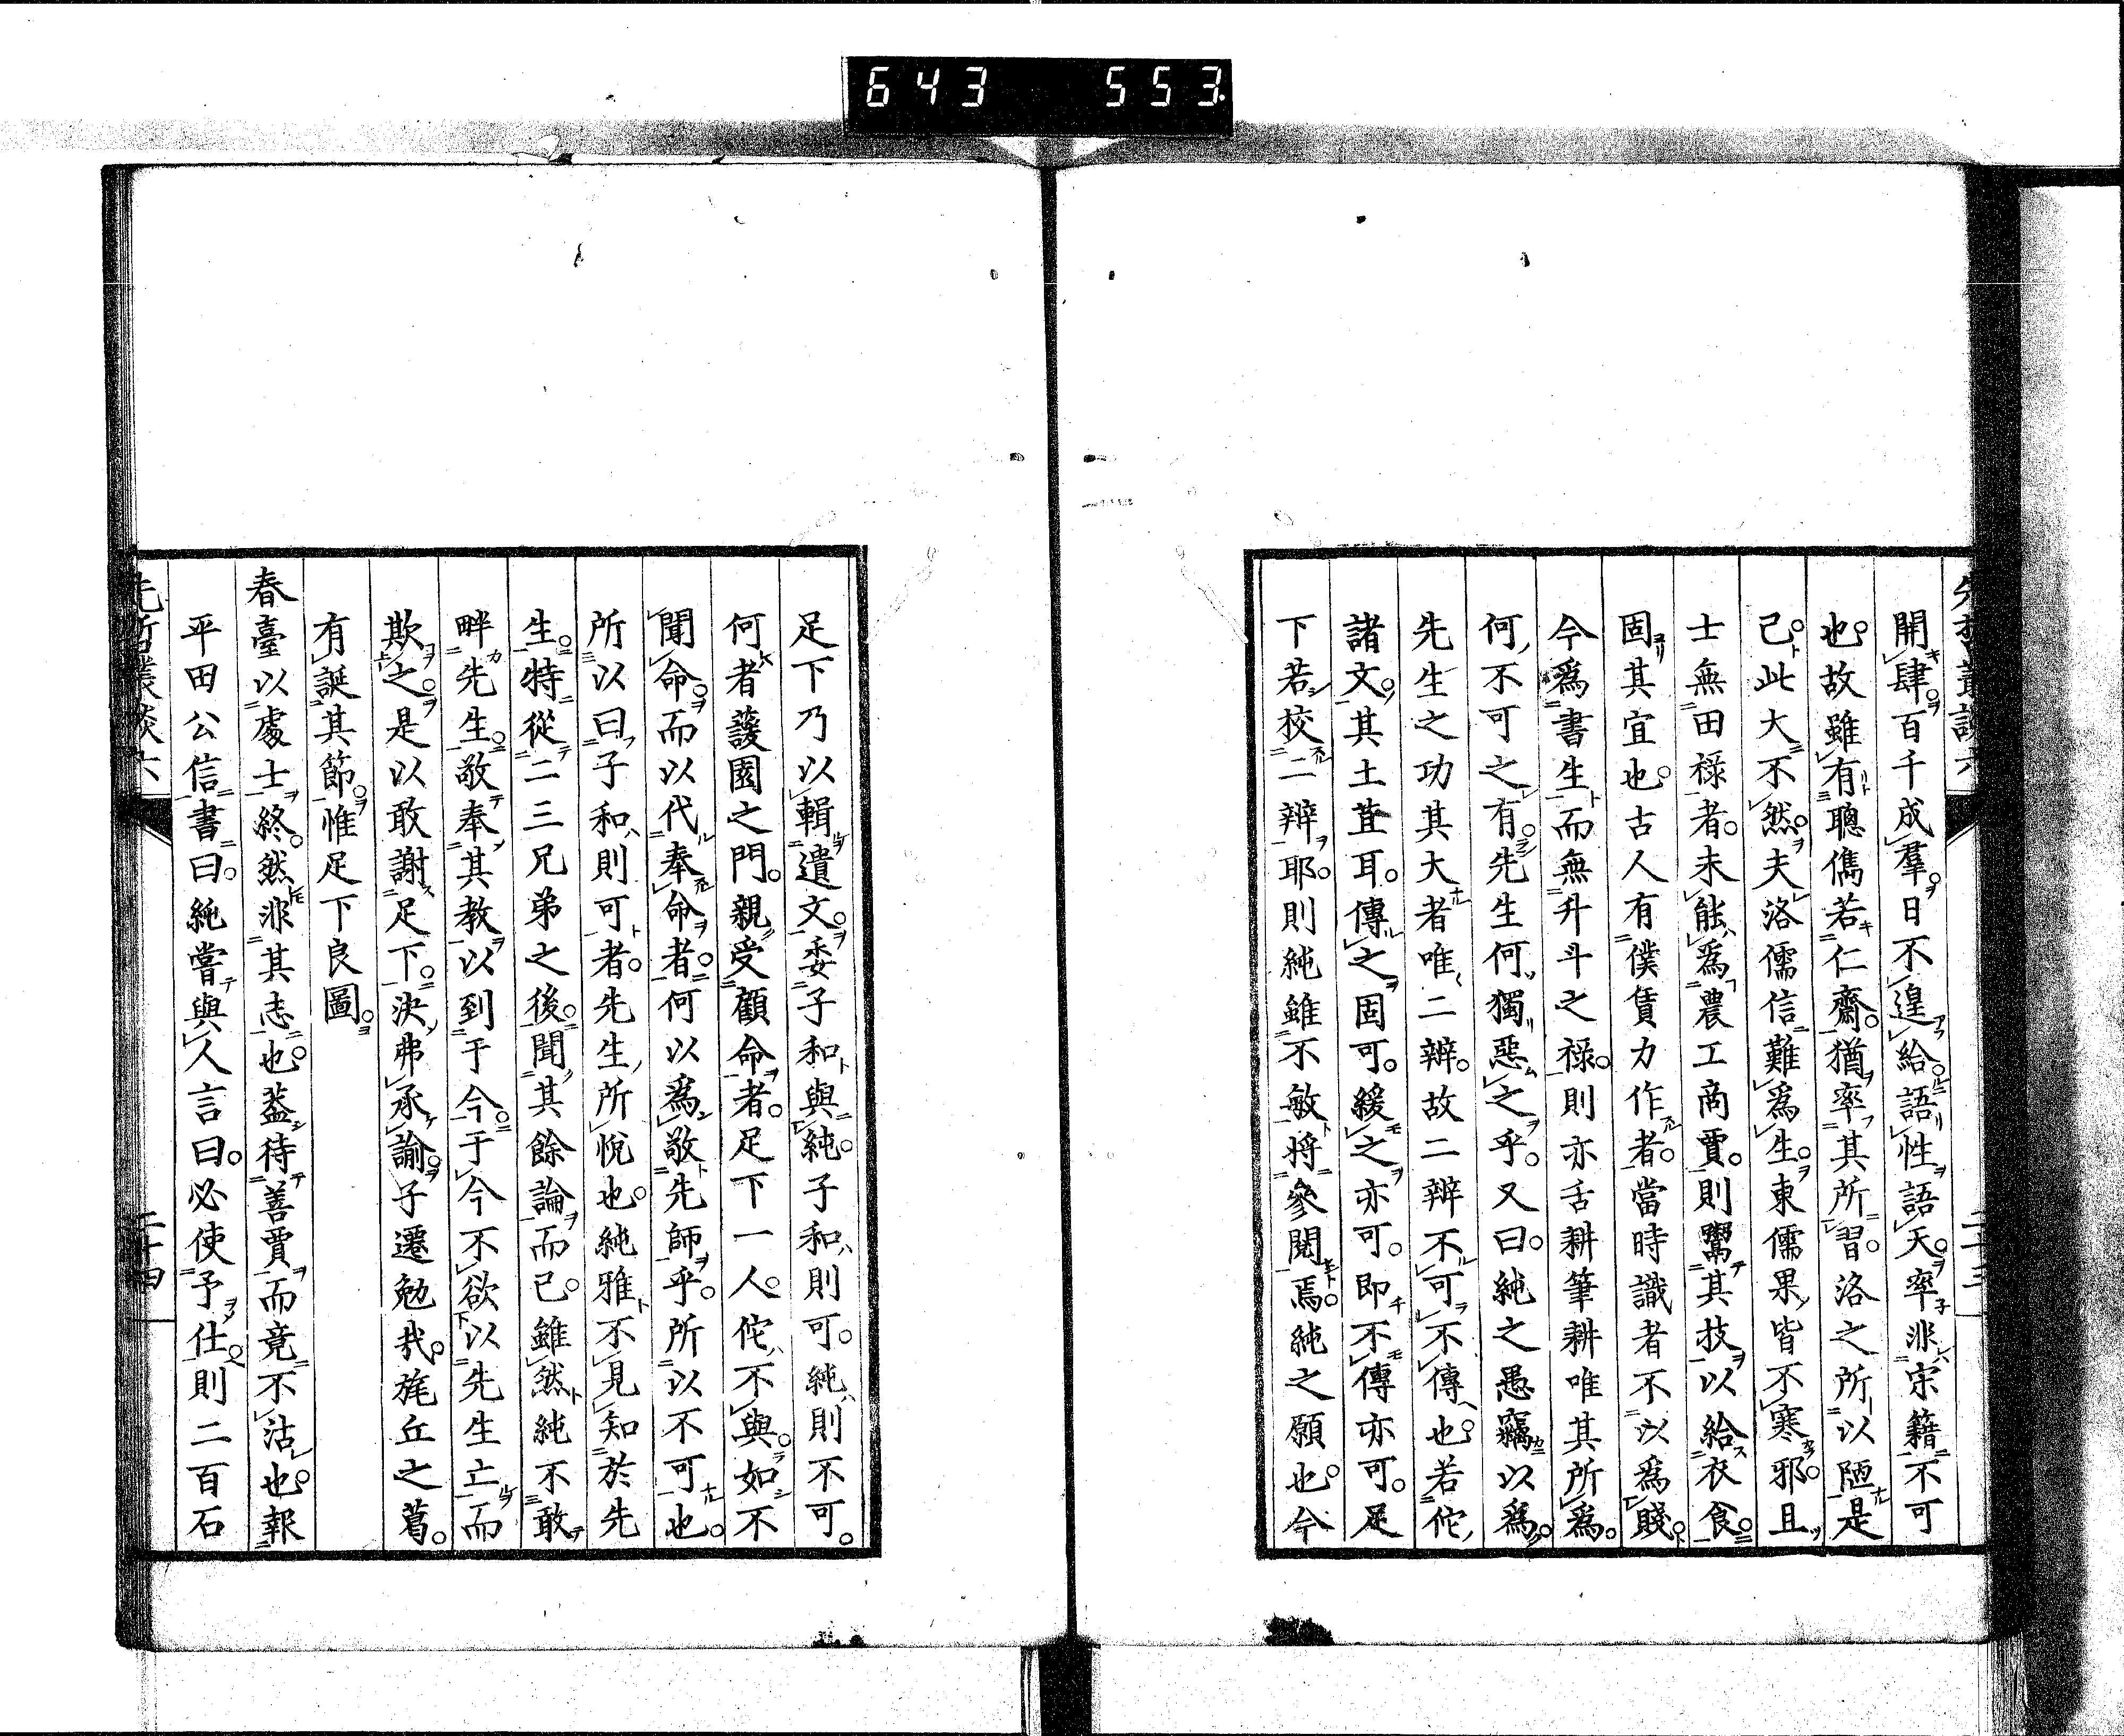 643 553
先哲叢談六
二十三
開肆。百千成羣。日不遑給。語性語天。率非宋籍不可
也。故雖有聰儁若仁齋。猶率其所習。洛之所以陋是
已。此大不然。夫洛儒信難爲生。東儒果皆不寒邪。且
士無田禄者。未能爲農工商賈。則鬻其技以給衣食。
固其宜也。古人有僕賃力作者。當時識者不以爲賤。
今爲書生而無升斗之禄。則亦舌耕筆耕唯其所爲。
何不可之有。先生何獨惡之乎。又曰。純之愚竊以爲。
先生之功其大者唯二辨。故二辨不可不傳也。若佗
諸文。其土苴耳。傳之固可。緩之亦可。即不傳亦可。足
下若校二辨耶。則純雖不敏將參閲焉。純之願也。今
足下乃以輯遺文。委子和與純。子和則可。純則不可。
何者蘐園之門。親受顧命者。足下一人。佗不與。如不
聞命。而以代奉命者。何以爲敬先師乎。所以不可也。
所以曰子和則可者。先生所悅也。純雅不見知於先
生。特從二三兄弟之後。聞其餘論而已。雖然純不敢
畔先生。敬奉其教以到于今。于今不欲以先生亡而
欺之。是以敢謝足下。決弗承諭。子遷勉哉。旄丘之葛。
有誕其節。惟足下良圖。
春臺以處士終。然非其志也。蓋待善賈而竟不沽也。報
平田公信書曰。純嘗與人言曰。必使予仕。則二百石
先哲叢談六
二十四